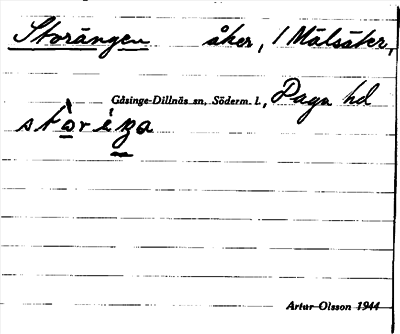 Storängen åker, 1 Målsåker,
Gåsinge-Dillnäs sn, Söderm. l., Daga hd
stòríŋa
Artur Olsson 1944